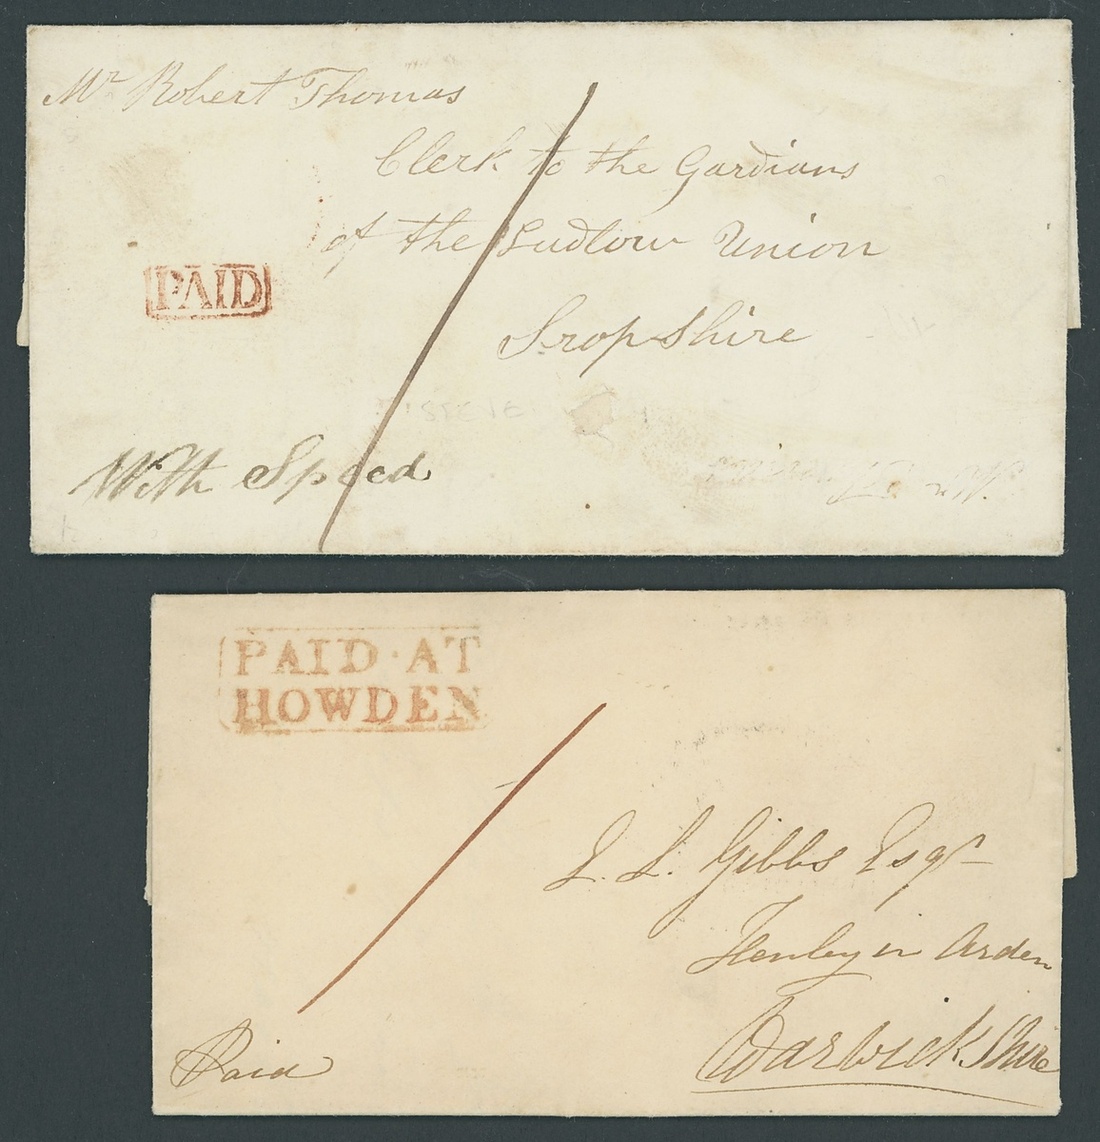 Mr Robert Thomas
Clerk to the Gardians
of the Ludlow Union
PAID
Sropshire
With Speed
PAID·AT
HOWDEN
J. L. Gibbs Esqr
Henley in Arden
Warwickshire
Paid